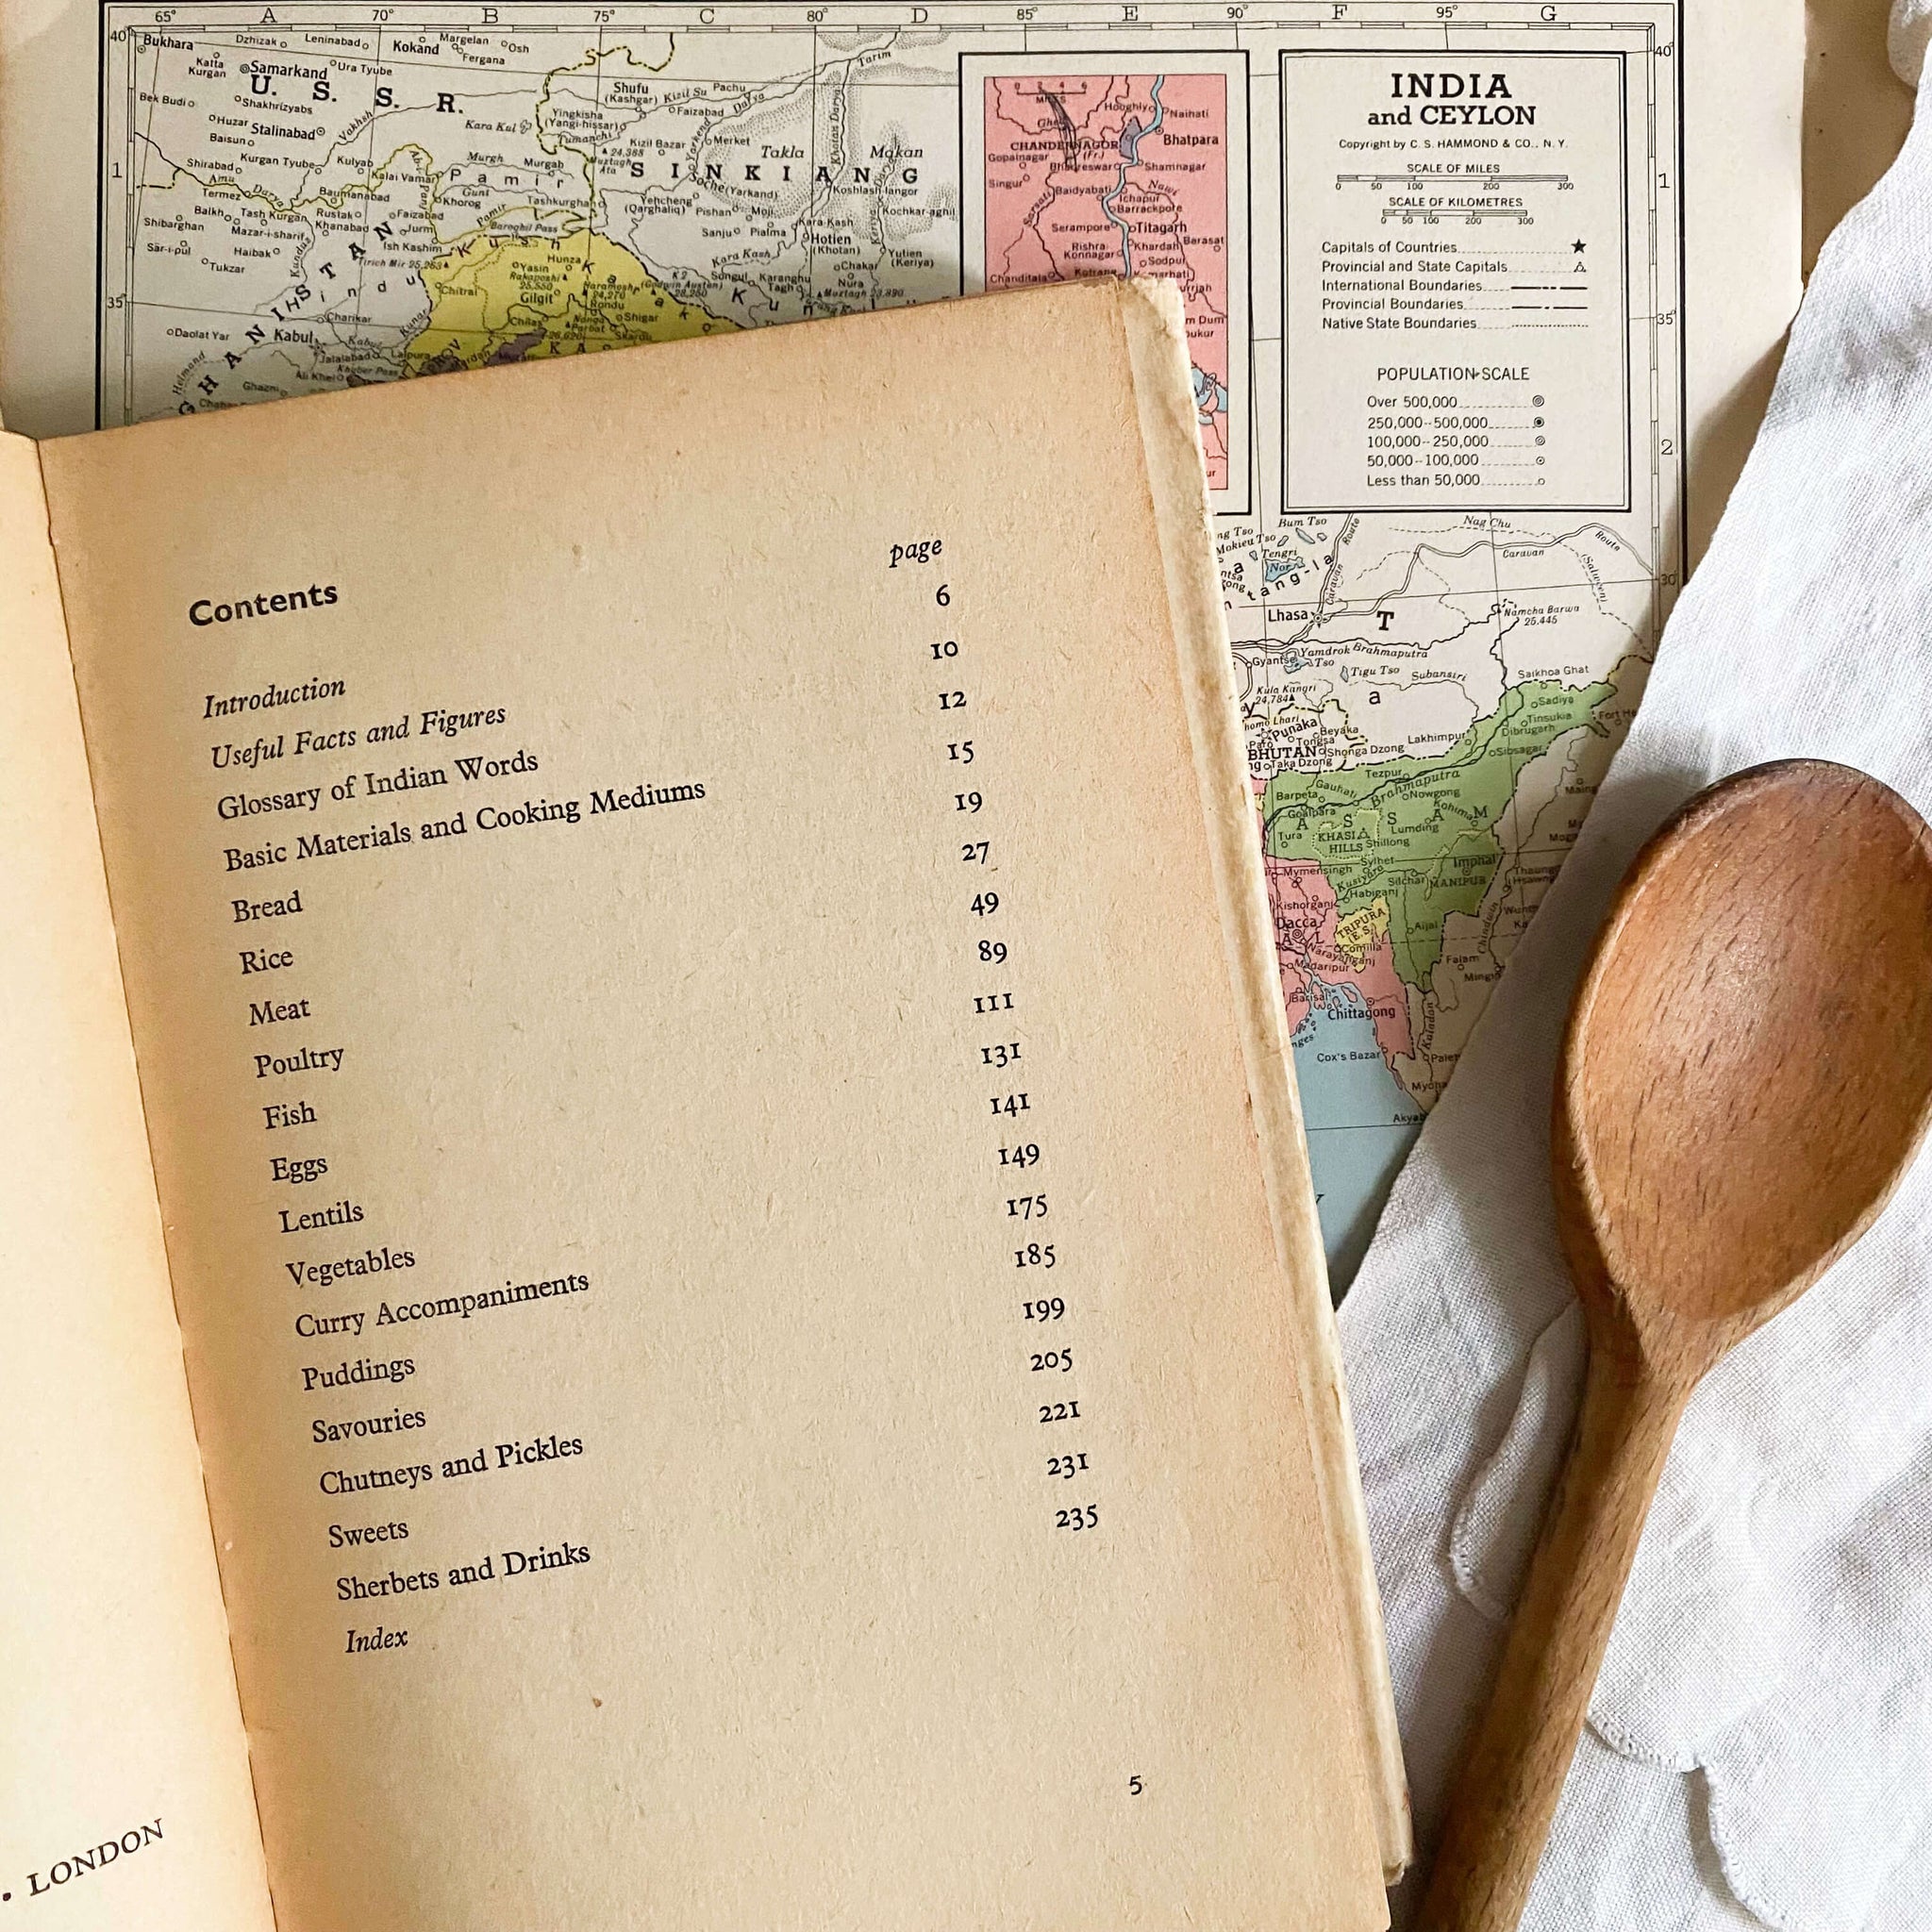 65° A 70° B 75° C 80° D 85° E 90° F 95° G
40°
Bukhara
Dzhizak
Leninabad
Kokand
Margelan
Osh
Fergana
Katta
Kurgan
Samarkand
Ura Tyube
U. S. S. R.
Bek Budi
Shakhrizyabs
Huzar
Stalinabad
Baisun
Vakhsh
Kara Kul
Shirabad
Kurgan Tyube
Kulyab
Kalai Vamar
Murgh
Murgab
Pamir
Gunt
Amu
Darya
Termez
Baumanabad
Khorog
Tashkurghan
Balkh
Tash Kurgan
Rustak
Faizabad
Shibarghan
Mazar-i-sharif
Khanabad
Jurm
Pamir
Baroghil Pass
Sar-i-pul
Haibak
Kunduz
Ish Kashim
Tukzar
Tirich Mir 25,263
Charikar
Daolat Yar
Kabul
Kabul
Jalalabad
Lalpura
Khyber Pass
Ali Khel
Ghazni
Helmand
Kunar
Chitral
Yasin
Hunza
Rakaposhi
25,550
Gilgit
Haramosh
24,270
Rondu
Chilas
Nanga
Parbat
26,620
Shigar
Skardu
K2
(Godwin Austen)
28,250
Shufu
(Kashgar)
Kizil Su
Pachu
Darya
Tarim
Yingkisha
(Yangi-hissar)
Faizabad
Tumanchi
Kizil Bazar
Merket
24,388
Muztagh
Ata
Yarkend
Takla
Makan
Khotan Darya
SINKIANG
Soche (Yarkand)
Koshlash-langor
Yehcheng
(Qarghaliq)
Pishan
Moji
Kochkar-aghil
Kara Kash
Sanju
Pialma
Hotien
(Khotan)
Keriya
Yutien
(Keriya)
Kara Kash
Chakar
Songul
Karanghu
Tagh
Nura
Muztagh 23,890
35°
1
0 2 4 6
MILES
Hooghly
Naihati
Bhatpara
CHANDERNAGOR
(Fr.)
Gopalnagar
Bhadreswar
Shamnagar
Singur
Baidyabati
Nawi
Ichapur
Barrackpore
Sarsati
Serampore
Titagarh
Rishra
Konnagar
Khardah
Barasat
Sodpur
Chanditala
Kotrang
INDIA
and CEYLON
Copyright by C. S. HAMMOND & CO., N. Y.
SCALE OF MILES
0 50 100 200 300
SCALE OF KILOMETRES
0 50 100 200 300
Capitals of Countries
Provincial and State Capitals
International Boundaries
Provincial Boundaries
Native State Boundaries
POPULATION SCALE
Over 500,000
250,000--500,000
100,000--250,000
50,000--100,000
Less than 50,000
40°
1
35°
2
30°
Bum Tso
Mokieu Tso
Tengri
Nor
tang-la
Nag Chu
Caravan
Route
Caravan
Route
(Salween)
Lhasa
T
Namcha Barwa
25.445
Gyantse
Yamdrok
Tso
Brahmaputra
Tigu Tso
Subansiri
Saikhoa Ghat
Kula Kangri
24,784
a
Sadiya
Tinsukia
Dibrugarh
Punaka
Beyaka
Paro
Tongsa
Lakhimpur
BHUTAN
Shonga Dzong
Taka Dzong
Sibsagar
Tezpur
Barpeta
Gauhati
Brahmaputra
Nowgong
Goalpara
Kohima
ASSAM
Tura
KHASI
HILLS
Shillong
Lumding
Sylhet
Imphal
Mymensingh
Kusiyara
Silchar
MANIPUR
Habiganj
Kishorganj
Dacca
TRIPURA
(E.S.)
Aijal
Comilla
Narayanganj
Madaripur
Falam
Chindwin
Barisal
Chittagong
Cox's Bazar
Kaladan
Contents
page
6
10
12
15
19
27
49
89
111
131
141
149
175
185
199
205
221
231
235
Introduction
Useful Facts and Figures
Glossary of Indian Words
Basic Materials and Cooking Mediums
Bread
Rice
Meat
Poultry
Fish
Eggs
Lentils
Vegetables
Curry Accompaniments
Puddings
Savouries
Chutneys and Pickles
Sweets
Sherbets and Drinks
Index
5
• LONDON